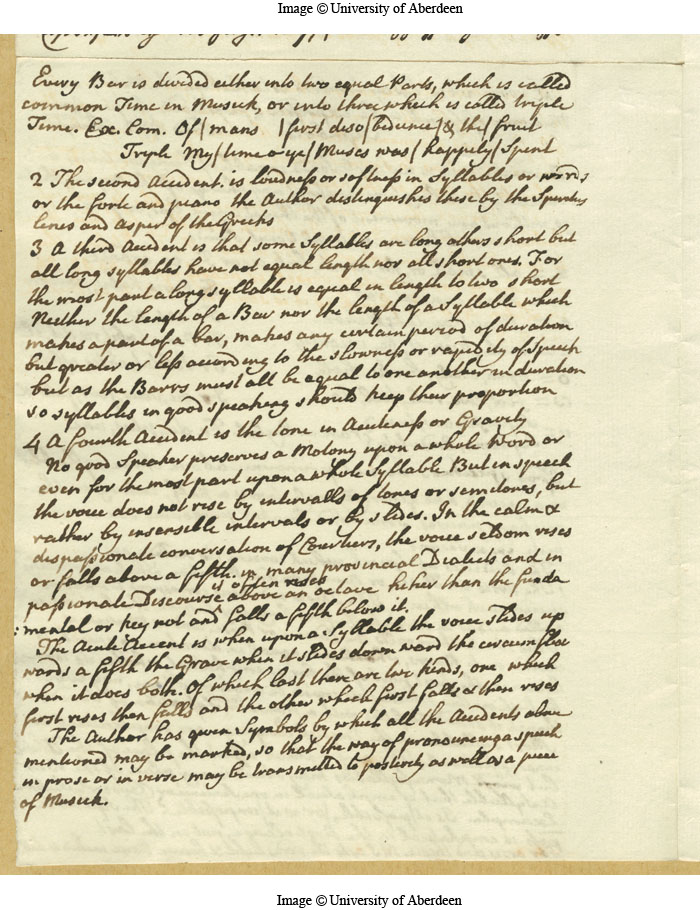 Image © University of Aberdeen
Every Bar is divided either into two equal Parts, which is called
common Time in Musick, or into three which is called triple
Time. Ex. Com. Of | mans | first diso | bedience | & the | fruit
Triple My | time o ye | Muses was | happily | Spent
2 The second Accident. is loudness or softness in Syllables or words
or the forte and piano the Author distinguishes these by the Spiritus
lenes and asper of the Greeks
3 A third Accident is that some Syllables are long others short but
all long syllables have not equal length nor all short ones. For
the most part a long syllable is equal in length to two short
Neither the length of a Bar nor the length of a Syllable which
makes a part of a bar, makes any certain period of duration
but greater or less according to the slowness or rapidity of Speech
but as the Barrs must all be equal to one another in duration
so syllables in good speaking should keep their proportion
4 A fourth Accident is the tone in Acuteness or Gravity
No good Speaker preserves a Motony upon a whole Word or
even for the most part upon a whole Syllable But in speech
the voice does not rise by intervalls of tones or semitones, but
rather by insensible intervals or by slides. In the calm &
dispassionate conversation of Courtiers, the voice seldom rises
or falls above a fifth. in many provincial Dialects and in
passionate Discourse it often rises above an octave higher than the funda
:mental or key not and falls a fifth below it.
The Acute Accent is when upon a Syllable the voice slides up
wards a fifth the Grave when it slides down ward the circumflex
when it does both. Of which last there are two kinds, one which
first rises then falls and the other which first falls & then rises
The Author has given Symbols by which all the Accidents above
mentioned may be marked, so that the way of pronouncing a speech
in prose or in verse may be transmitted to posterity as well as a piece
of Musick.
Image © University of Aberdeen